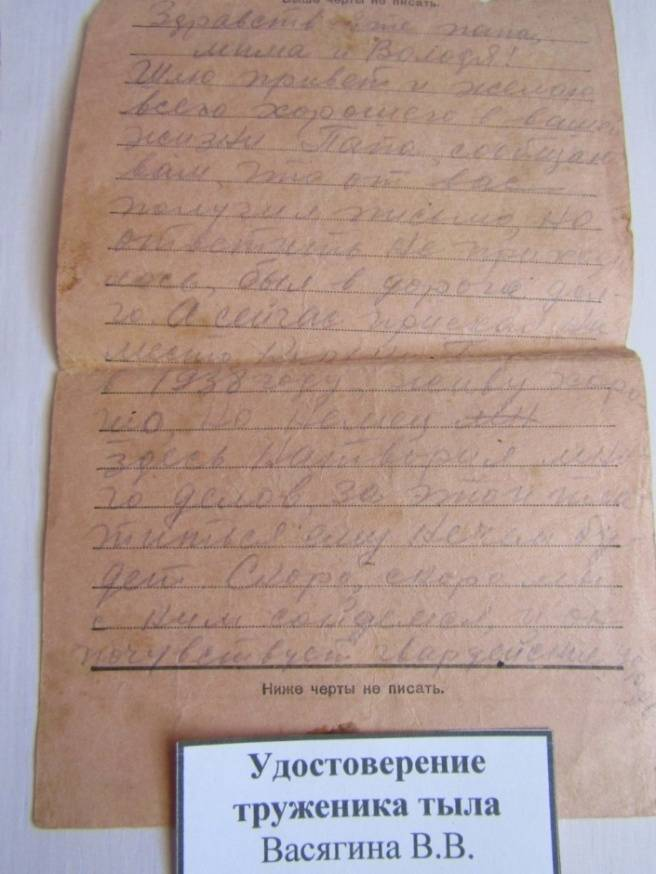 Выше черты не писать.
Здравствуйте папа,
мама и Володя!
Шлю привет и желаю
всего хорошего в вашей
жизни Папа, сообщаю
вам, что от вас
получил письмо, но
ответить не прихо
лось, был в дороге дол-
го. А сейчас приехал на
место
в 1938 году, живу хоро
шо, но немец
здесь натворил мно
го делов, за это и пла
титься ему нечем бу-
дет Скоро, скоро мы
с ним сойдемся, и он
почувствует гвардейский
Ниже черты не писать.
Удостоверение
труженика тыла
Васягина В.В.